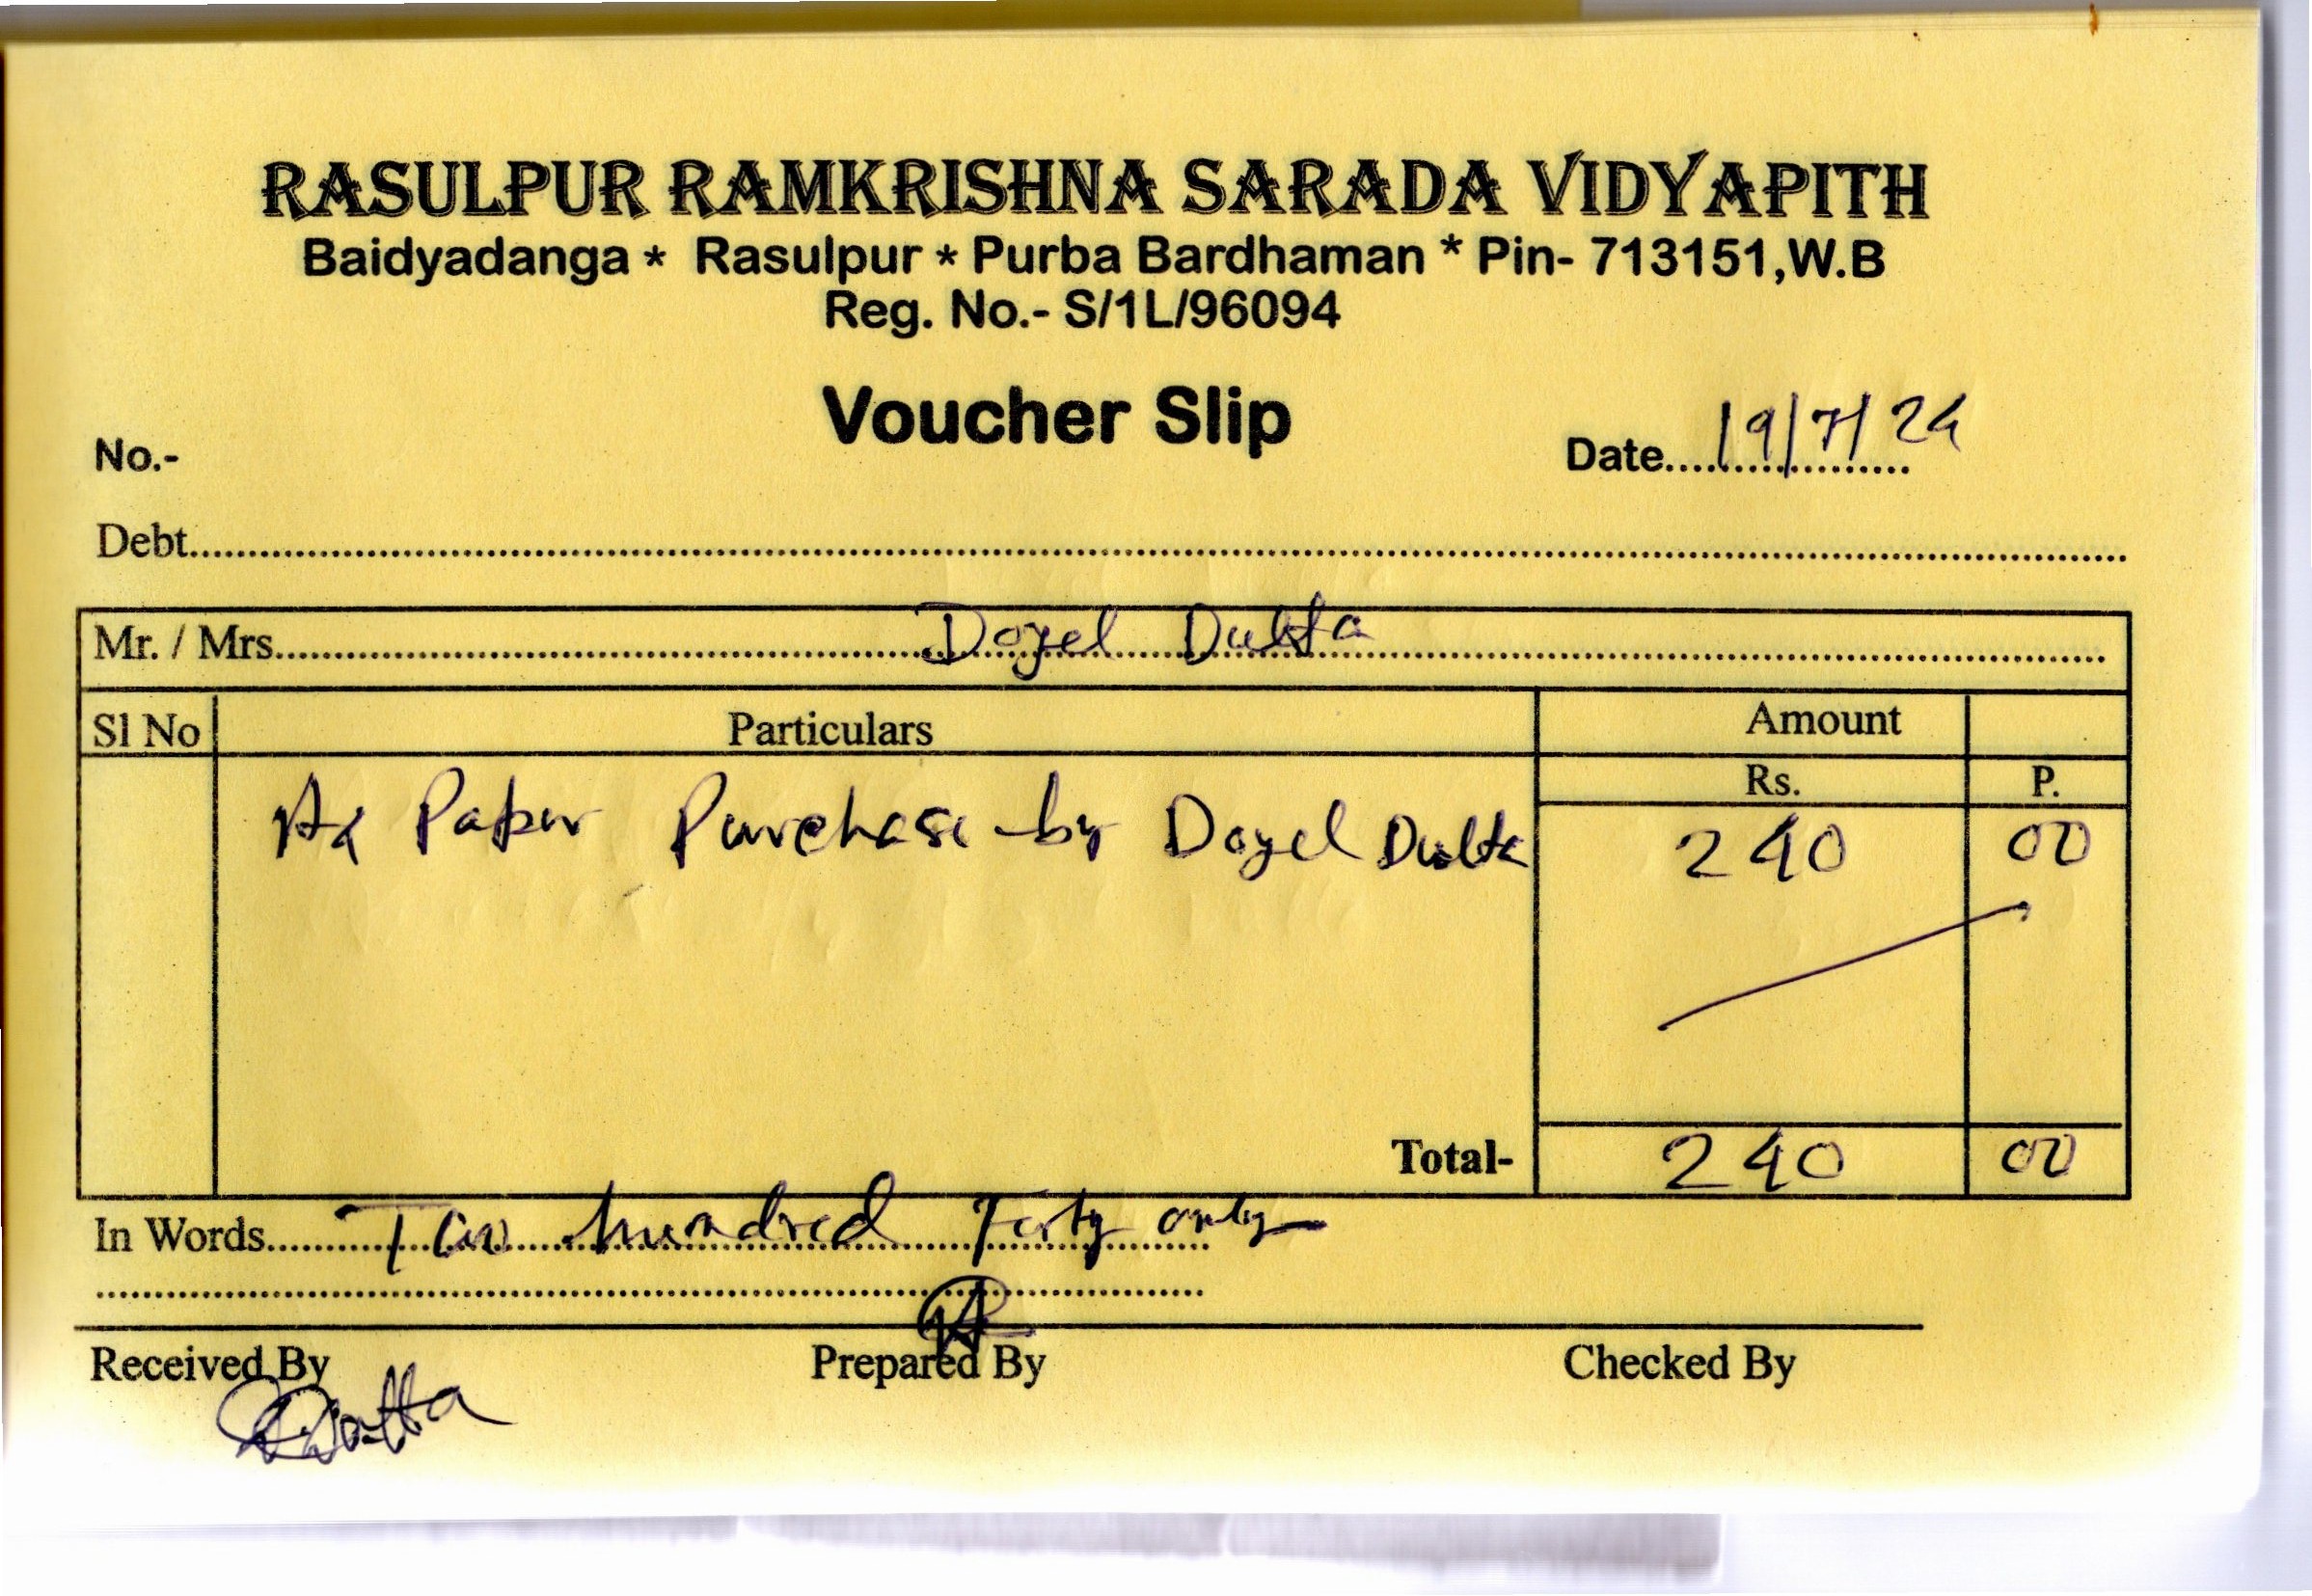 RASULPUR RAMKRISHNA SARADA VIDYAPITH
Baidyadanga * Rasulpur * Purba Bardhaman * Pin- 713151,W.B
Reg. No.- S/1L/96094
Voucher Slip
No.-
Date....19/7/24
Debt........
Mr. / Mrs........Doyel Dutta........
Sl No Particulars Amount
Rs. P.
A4 Paper Purchase by Doyel Dutta 240 00
Total- 240 00
In Words........Two hundred Forty only
Received By Prepared By Checked By
Dutta